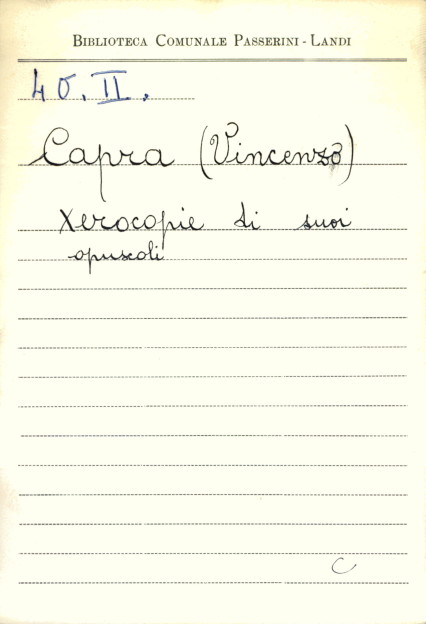 BIBLIOTECA COMUNALE PASSERINI - LANDI
40. II.
Capra (Vincenzo)
Xerocopie di suoi
opuscoli
C